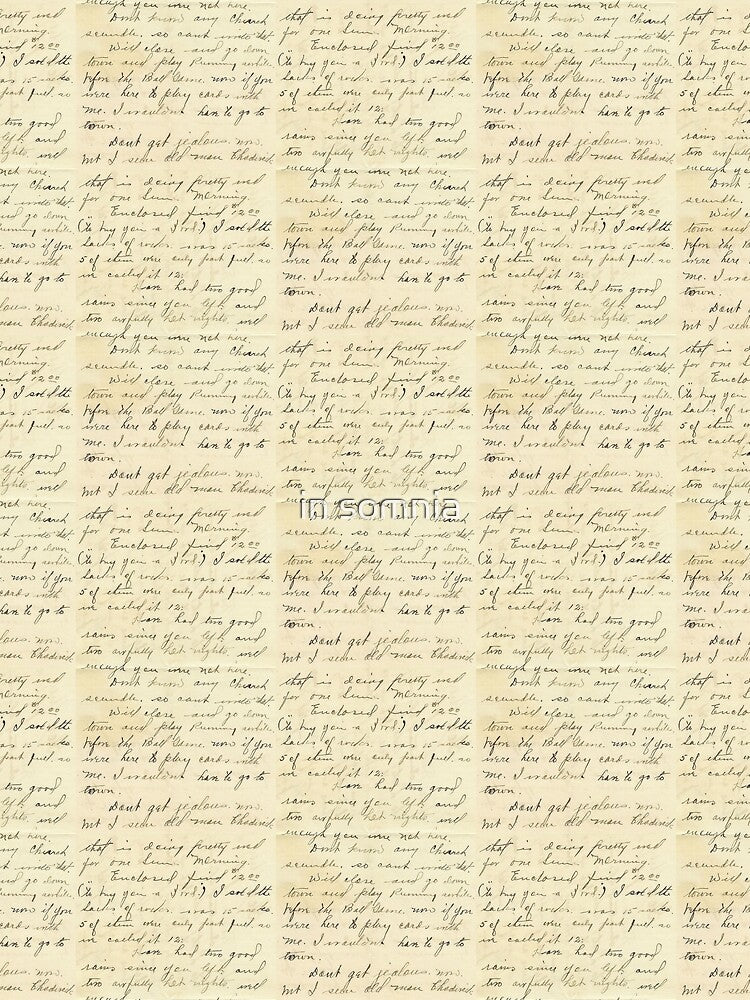 that is doing pretty well
for one Sun. Morning.
Enclosed find $12.00
(To buy you a Ford.) I sold the
sacks of was 15 sacks
5 of them were only part full. so
in called it 12:
Have had two good
rains since you left and
two awfully hot nights, well
enough you were not here.
Dont know any Church
scandle. so cant write that.
Will close and go down
town and play Rummy, while
before the Ball Game. now if you
were here to play cards with
me. I wouldnt have to go to
town.
Dont get jealous. now.
but I seen old man
in somnia